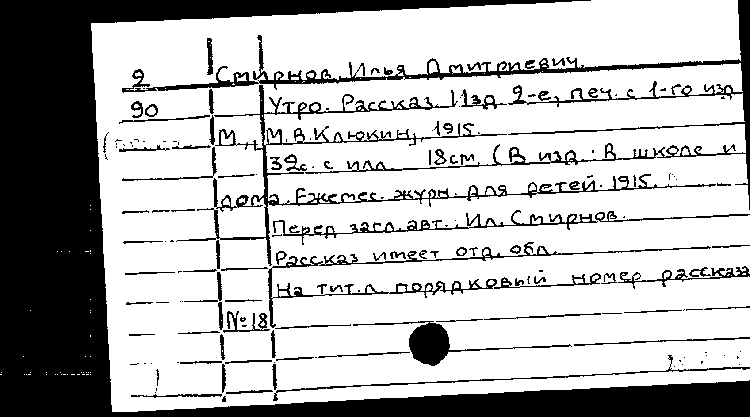 9 Смирнов, Илья Дмитриевич.
90 Утро. Рассказ. Изд. 2-е, печ. с 1-го изд
М., М.В.Клюкин, 1915.
32с. с илл. 18см. (В изд.: В школе и
дома. Ежемес. журн. для детей. 1915.
Перед загл. авт.: Ил. Смирнов.
Рассказ имеет отд. обл.
На тит.л. порядковый номер рассказа
№18